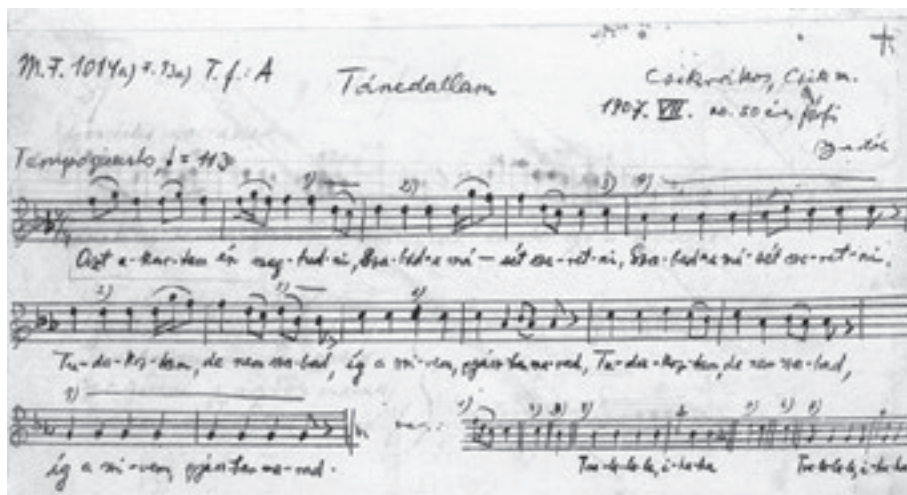 M.F. 1014a) T.f.: A
Táncdallam
Csíkrákos, Csík m.
1907. VII. 50 éves férfi
Bartók
Tempo giusto ♩ = 113
Azt a-kar-tam én meg-tud-ni, Sza-bad-e má-sét sze-ret-ni, Sza-bad-e má-sét sze-ret-ni.
Tu-da-koz-tam, de nem sza-bad, íg a szi-vem, gyászban ma-rad, Tu-da-koz-tam, de nem sza-bad,
íg a szi-vem gyászban ma-rad.
var.:
Tra-la-la-la, i-ha-ha Tra-la-la-la, i-ha-ha